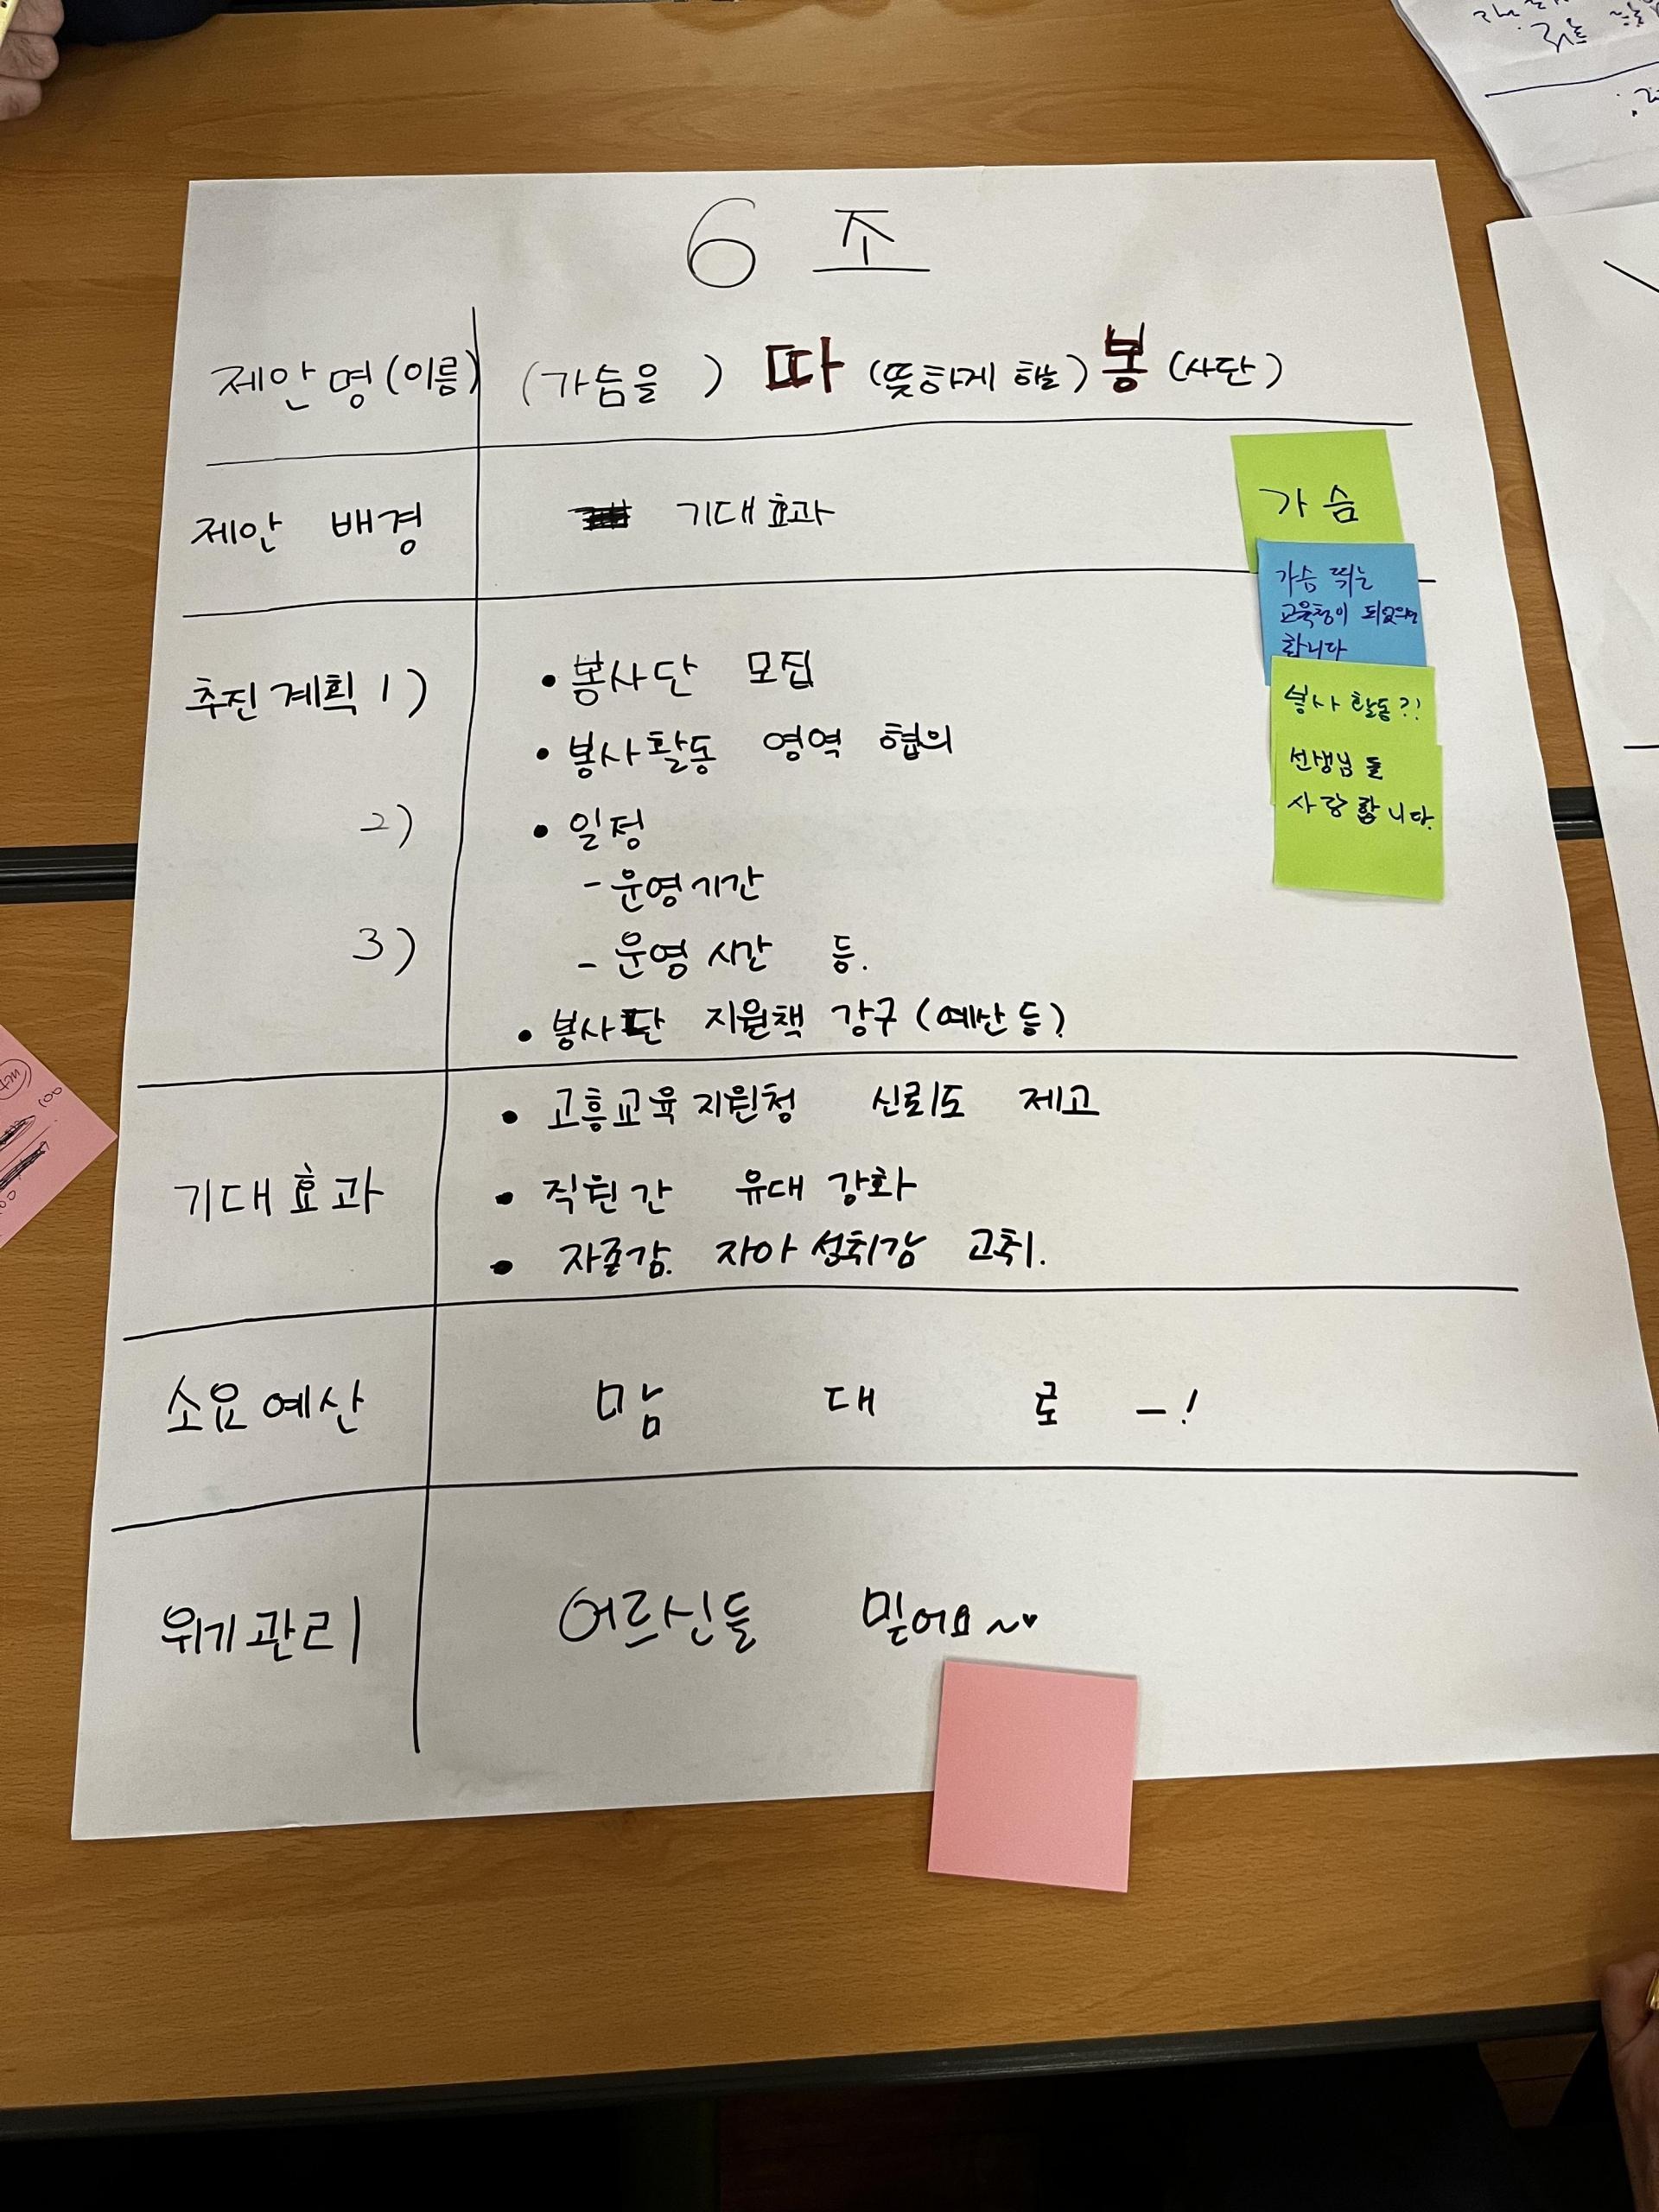 6 조
제안명(이름) (가슴을 ) 따 (뜻하게 하는) 봉 (사단)
제안 배경 기대효과
추진계획 1) • 봉사단 모집
• 봉사활동 영역 협의
2) • 일정
- 운영기간
3) - 운영 시간 등.
• 봉사단 지원책 강구 (예산 등)
• 고흥교육지원청 신뢰도 제고
기대효과 • 직원간 유대 강화
• 자존감. 자아 성취감 고취.
소요예산 맘 대 로 - !
위기관리 어르신들 믿어요~♥
가슴
가슴 뛰는
교육청이 되었으면
합니다
봉사 활동?!
선생님들
사랑합니다.